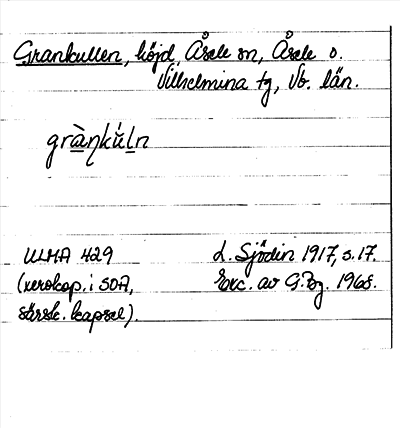 Grankullen, höjd, Åsele sn, Åsele o.
Vilhelmina tg, Vb. län.
gràŋkŭ́ln
ULMA 429
L. Sjödin 1917, s. 17.
(xerokop. i SOA,
Exc. av G. Bg. 1968.
särsk. kapsel).